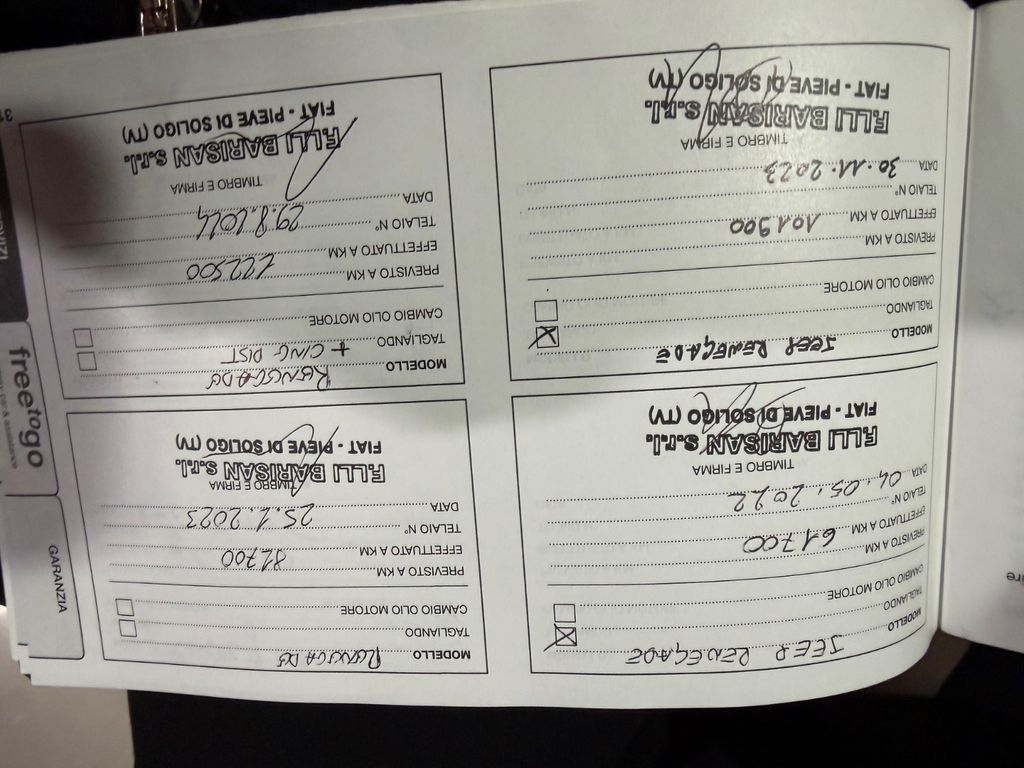 MODELLO JEEP RENEGADE
TAGLIANDO
CAMBIO OLIO MOTORE
PREVISTO A KM
EFFETTUATO A KM 61700
TELAIO N°
DATA 04.05.2022
TIMBRO E FIRMA
F.LLI BARISAN s.r.l.
FIAT - PIEVE DI SOLIGO (TV)
MODELLO RENEGADE
TAGLIANDO
CAMBIO OLIO MOTORE
PREVISTO A KM
EFFETTUATO A KM 81700
TELAIO N°
DATA 25.1.2023
TIMBRO E FIRMA
F.LLI BARISAN s.r.l.
FIAT - PIEVE DI SOLIGO (TV)
MODELLO JEEP RENEGADE
TAGLIANDO
CAMBIO OLIO MOTORE
PREVISTO A KM
EFFETTUATO A KM 101900
TELAIO N°
DATA 30.11.2023
TIMBRO E FIRMA
F.LLI BARISAN s.r.l.
FIAT - PIEVE DI SOLIGO (TV)
MODELLO RENEGADE
TAGLIANDO + CING DIST
CAMBIO OLIO MOTORE
PREVISTO A KM
EFFETTUATO A KM 122500
TELAIO N°
DATA 29.8.2024
TIMBRO E FIRMA
F.LLI BARISAN s.r.l.
FIAT - PIEVE DI SOLIGO (TV)
GARANZIA
freetogo